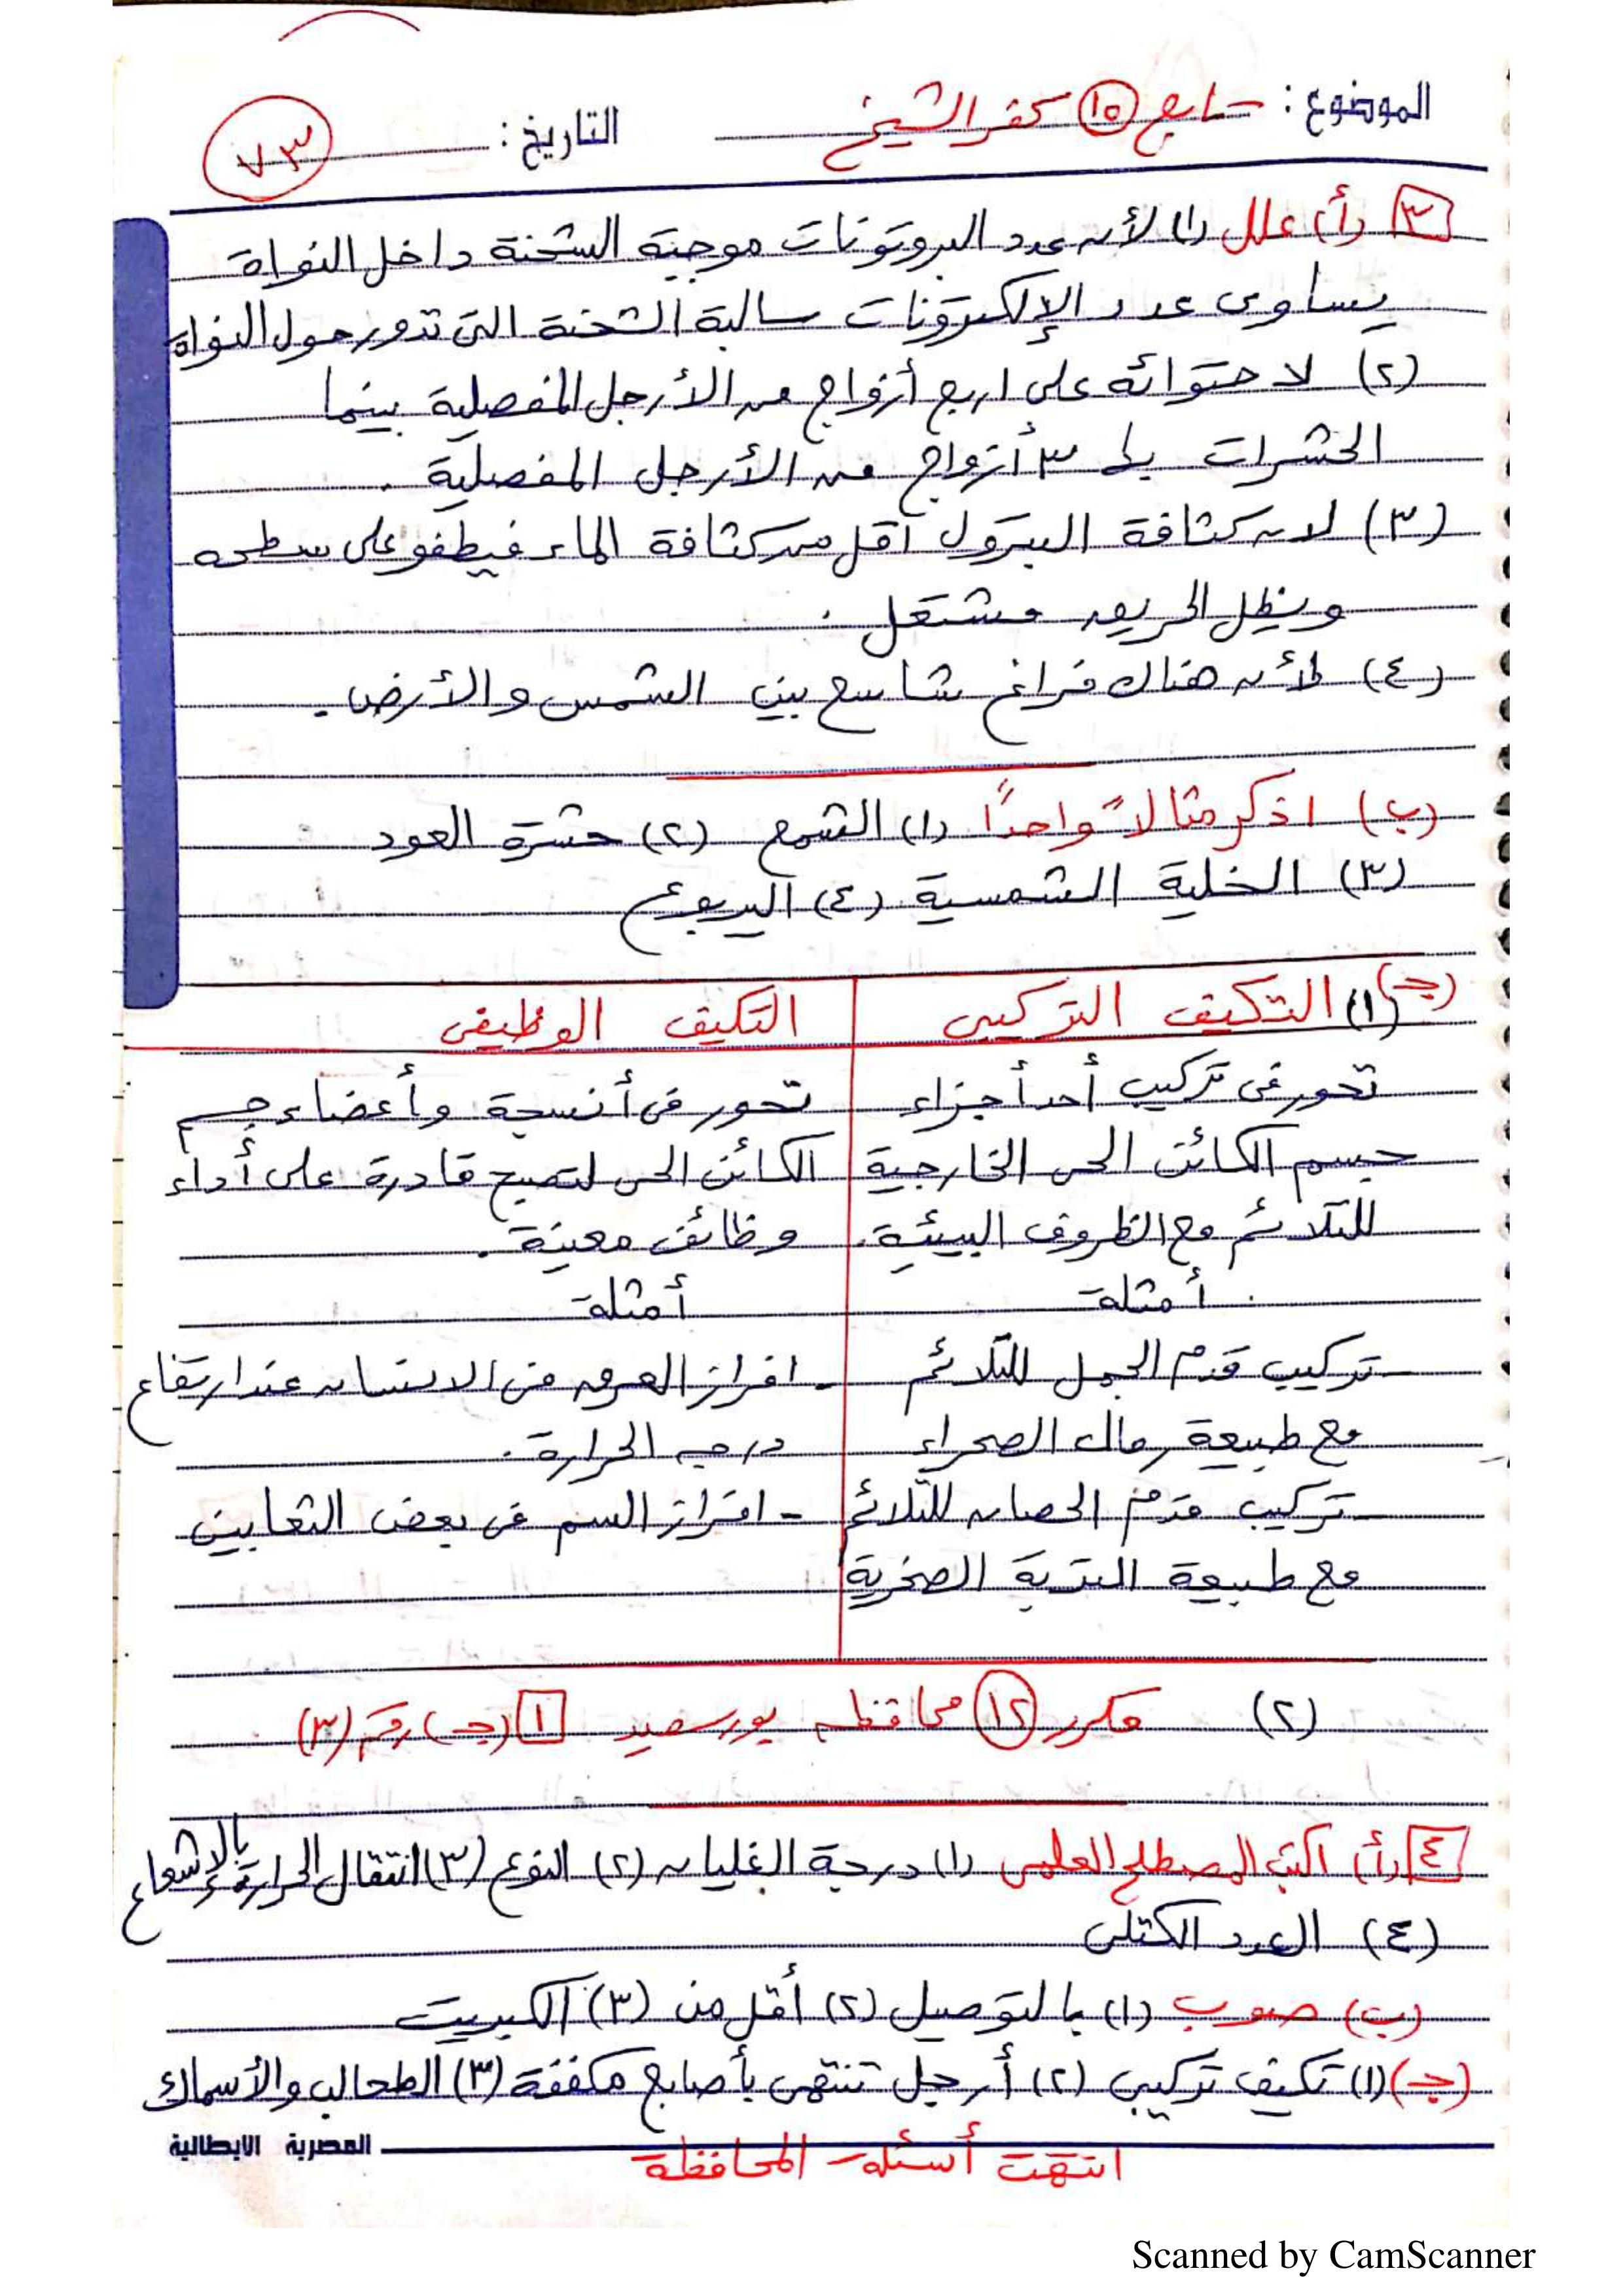 الموضوع: تابع (١٥) كفر الشيخ
التاريخ: ٧٣
٣ (أ) علل (١) لأن عدد البروتونات موجبة الشحنة داخل النواة
يساوى عدد الإلكترونات سالبة الشحنة التى تدور حول النواة
(٢) لاحتوائه على اربع أزواج من الأرجل المفصلية بينما
الحشرات لها ٣ أزواج من الأرجل المفصلية .
(٣) لان كثافة البترول أقل من كثافة الماء فيطفو على سطحه
ويظل الحريق مشتعل .
(٤) لأن هناك فراغ شاسع بين الشمس والأرض .
(ب) اذكر مثالاً واحداً (١) الشمع (٢) حشرة العود
(٣) الخلية الشمسية (٤) اليربوع
(جـ) (١) التكيف التركيبى | التكيف الوظيفى
تحور فى تركيب أحد أجزاء | تحور فى أنسجة وأعضاء جسم
جسم الكائن الحى الخارجية | الكائن الحى لتصبح قادرة على أداء
للتلائم مع الظروف البيئية . | وظائف معينة .
أمثلة | أمثلة
- تركيب قدم الجمل للتلائم | - افراز العرق فى الانسان عند ارتفاع
مع طبيعة رمال الصحراء | درجة الحرارة .
- تركيب قدم الحصان للتلائم | - افراز السم فى بعض الثعابين
مع طبيعة التربة الصخرية
(٢) مكرر (١٢) محافظة بورسعيد ١ (جـ) رقم (٣)
٤ (أ) اكتب المصطلح العلمى (١) درجة الغليان (٢) النوع (٣) انتقال الحرارة بالإشعاع
(٤) العدد الكتلى
(ب) صوب (١) بالتوصيل (٢) أقل من (٣) الكبريت
(جـ) (١) تكيف تركيبى (٢) أرجل تنتهى بأصابع مكففة (٣) الطحالب والأسماك
المصرية الايطالية
انتهت أسئلة المحافظة
Scanned by CamScanner